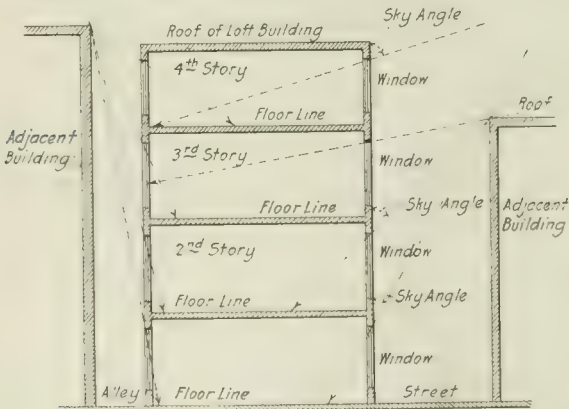 Roof of Loft Building
Sky Angle
4th Story
Window
Floor Line
Roof
Adjacent
Building
3rd Story
Window
Floor Line
Sky Angle
Adjacent
Building
2nd Story
Window
Floor Line
Sky Angle
Window
Alley
Floor Line
Street